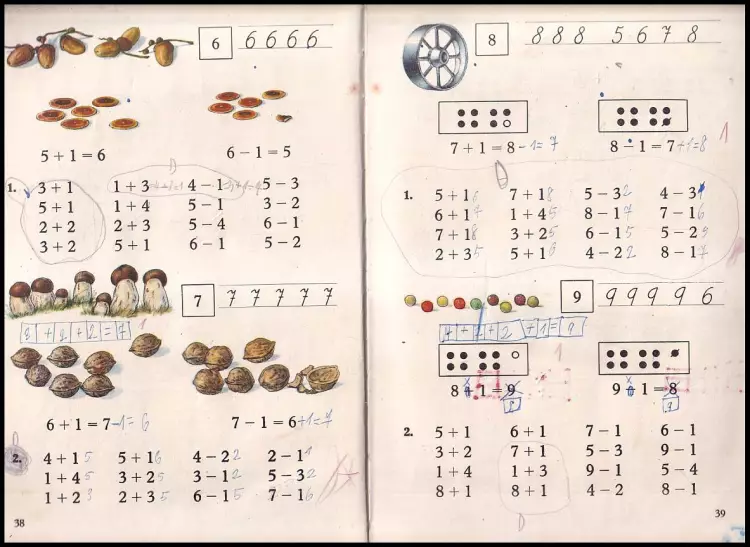 6 6 6 6 6
5 + 1 = 6 6 − 1 = 5
1. 3 + 1 1 + 3 4 − 1 5 − 3
5 + 1 1 + 4 5 − 1 3 − 2
2 + 2 2 + 3 5 − 4 6 − 1
3 + 2 5 + 1 6 − 1 5 − 2
7 7 7 7 7 7
3 + 2 + 2 = 7
6 + 1 = 7 −1= 6 7 − 1 = 6 +1=7
2. 4 + 1 5 5 + 1 6 4 − 2 2 2 − 1 1
1 + 4 5 3 + 2 5 3 − 1 2 5 − 3 2
1 + 2 3 2 + 3 5 6 − 1 5 7 − 1 6
38
8 8 8 8 5 6 7 8
7 + 1 = 8 −1= 7 8 − 1 = 7 +1=8
1. 5 + 1 6 7 + 1 8 5 − 3 2 4 − 3
6 + 1 7 1 + 4 5 8 − 1 7 7 − 1 6
7 + 1 8 3 + 2 5 6 − 1 5 5 − 2
2 + 3 5 5 + 1 6 4 − 2 2 8 − 1 7
9 9 9 9 9 6
+ 2 + 1 = 9
8 + 1 = 9 9 1 = 8
8 9
2. 5 + 1 6 + 1 7 − 1 6 − 1
3 + 2 7 + 1 5 − 3 9 − 1
1 + 4 1 + 3 9 − 1 5 − 4
8 + 1 8 + 1 4 − 2 8 − 1
39